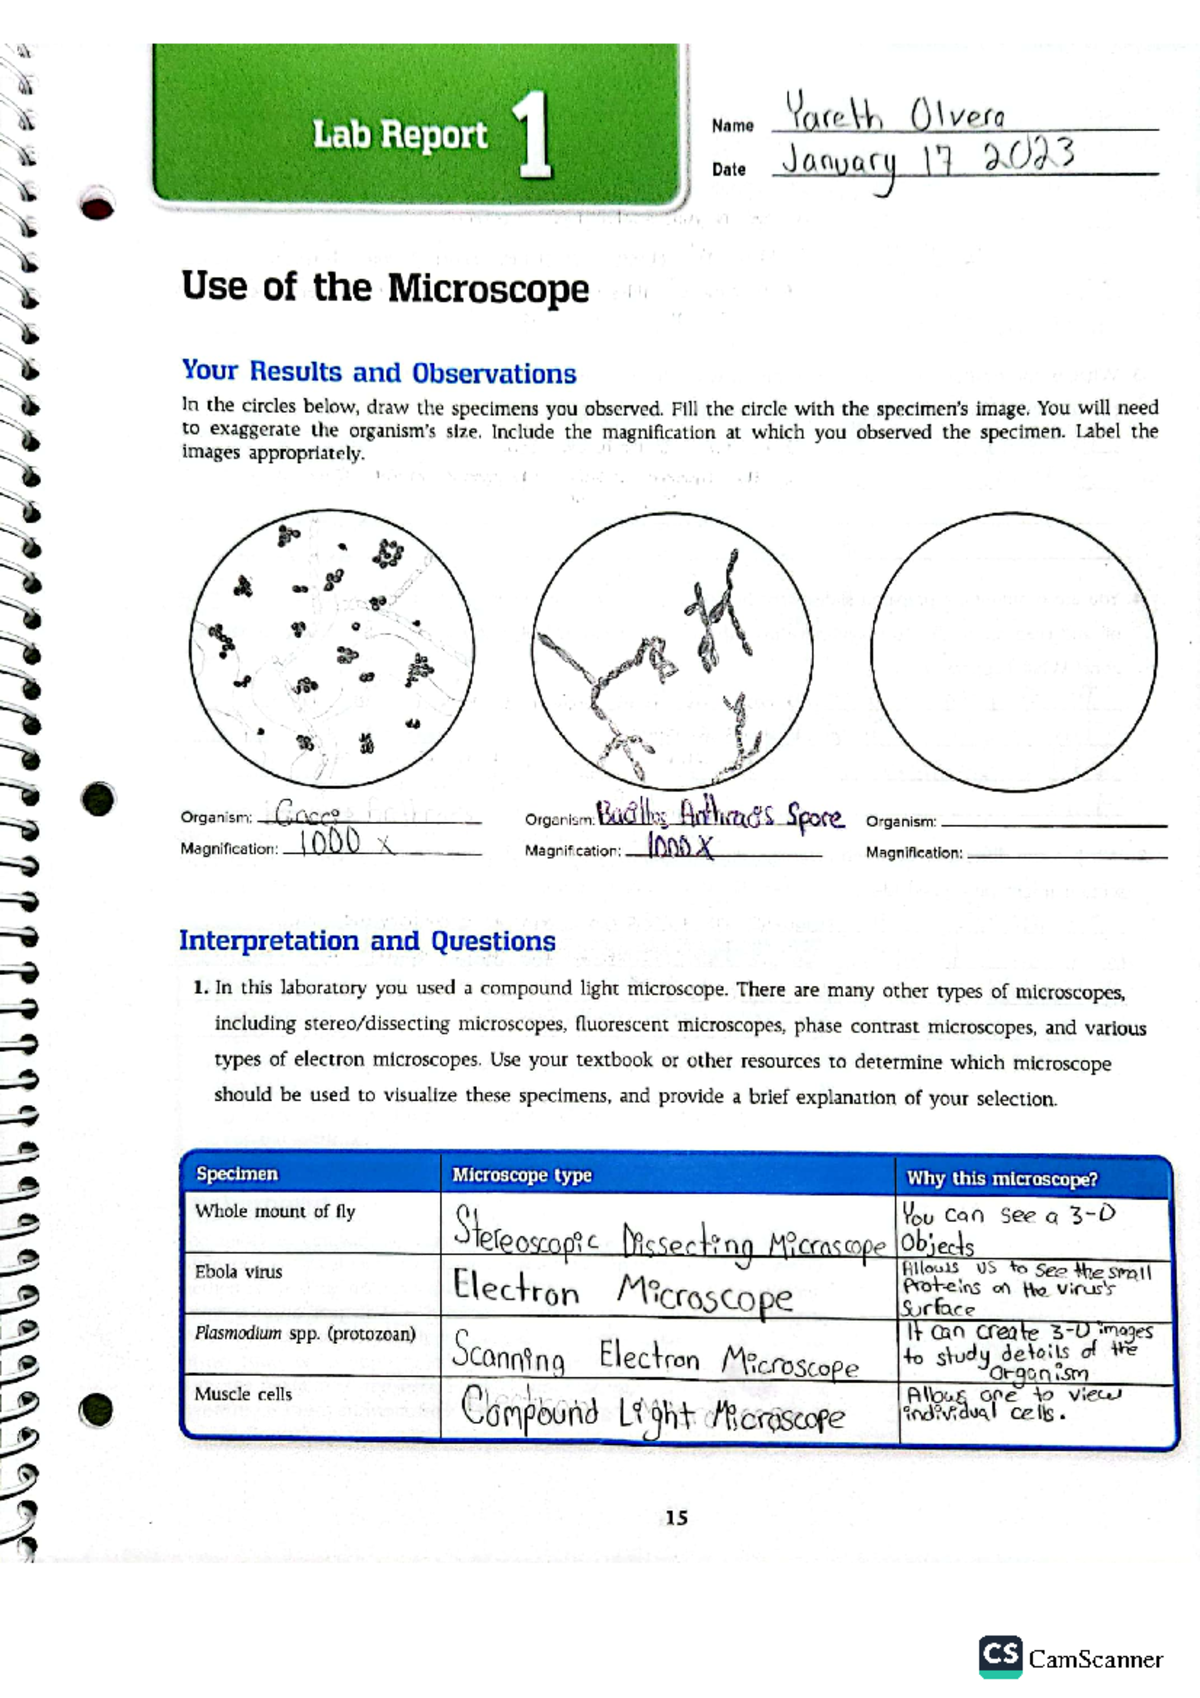 Lab Report 1
Name Yareth Olvera
Date January 17 2023
Use of the Microscope
Your Results and Observations
In the circles below, draw the specimens you observed. Fill the circle with the specimen's image. You will need
to exaggerate the organism's size. Include the magnification at which you observed the specimen. Label the
images appropriately.
Organism: Cocci
Magnification: 1000 X
Organism: Spore
Magnification: 1000 X
Organism:
Magnification:
Interpretation and Questions
1. In this laboratory you used a compound light microscope. There are many other types of microscopes,
including stereo/dissecting microscopes, fluorescent microscopes, phase contrast microscopes, and various
types of electron microscopes. Use your textbook or other resources to determine which microscope
should be used to visualize these specimens, and provide a brief explanation of your selection.
Specimen Microscope type Why this microscope?
Whole mount of fly Stereoscopic Dissecting Microscope You can see a 3-D
Objects
Ebola virus Electron Microscope Allows us to see the small
Proteins on the virus's
Surface
Plasmodium spp. (protozoan) Scanning Electron Microscope It can create 3-D images
to study details of the
Organism
Muscle cells Compound Light Microscope Allows one to view
individual cells.
15
CS CamScanner